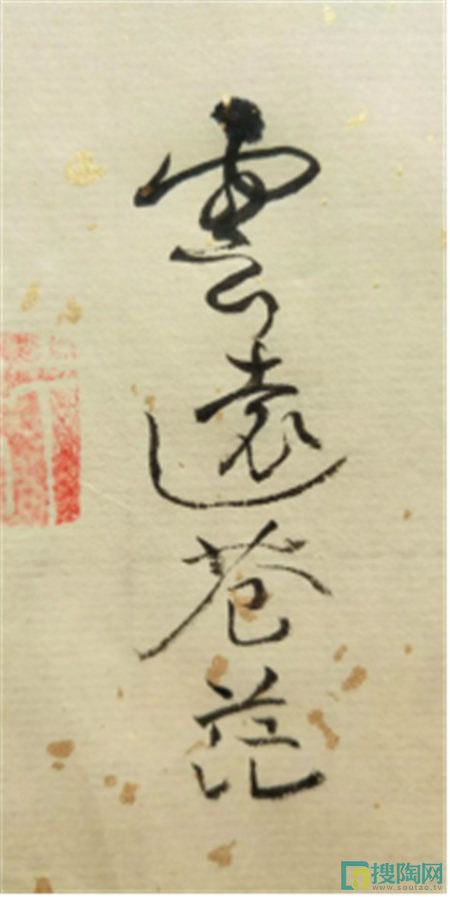 雲遠苍茫
搜陶网
www.soutao.tv